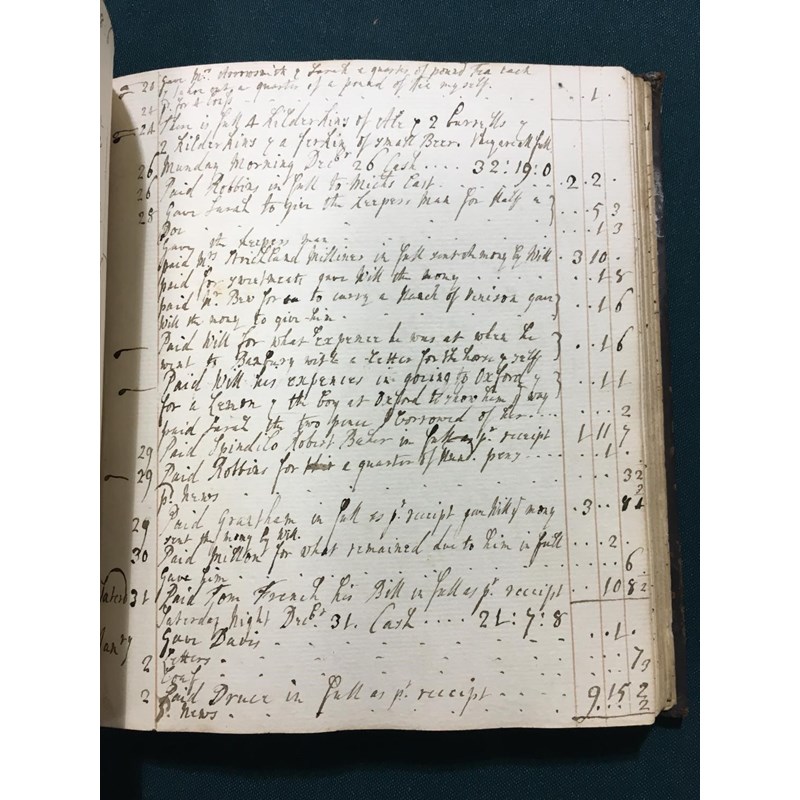 24 Gave Mrs Arrowsmith & Sarah a quarter of pound Tea each
a quarter of a pound of Tea my self.
24 pd for 4 . . 1 .
24 There is full 4 Kilderkins of Ale & 2 burrells &
2 Kilderkins & a ferkin of small Beer.
26 Munday Morning Decbr 26 Cash .... 32:19:0
26 Paid Robbins in full to Micks East . 2 . 2 .
28 Gave Sarah to give the keepers man for Half a } . . 5 3
Doe
Gave the keepers man . . 1 3
paid Mrs Strickland Milliner in full sent the mony by Will . 3 10 .
paid for sweetmeats gave Will the mony . . 1 8
paid Mr Bew for to carry a Hanch of Venison gave } . . 1 6
Will the mony to give him .
Paid Will for what expence he was at when he } . . 1 6
went to Banbury with a Letter for the horse & self
Paid Will his expences in going to Oxford & } . . 1 1
for a Lemon & the boy at Oxford to show him ye way
paid Sarah the two pence I borrowed of her . . . . 2
29 Paid Spindilo Robert Baker in full as pr receipt 1 11 7
29 Paid Robbins for a quarter of Hund. pens . . 1 .
pd News 3 2
29 Paid Grantham in full as pr receipt gave Will ye mony . 3 . . 8
sent the mony by Will.
30 Paid Mitton for what remained due to him in full . . . 2 .
Gave him . . 6
Saterd 31 Paid Tom French his Bill in full as pr receipt . . 10 8 1/2
Saterday Night Decbr 31. Cash .... 21:7:8
Janry Gave Davis . . . 1 .
2 Letters . . 7
Loaf . 3
2 Paid Druce in full as pr receipt 9 . 15 2
pd News . 2